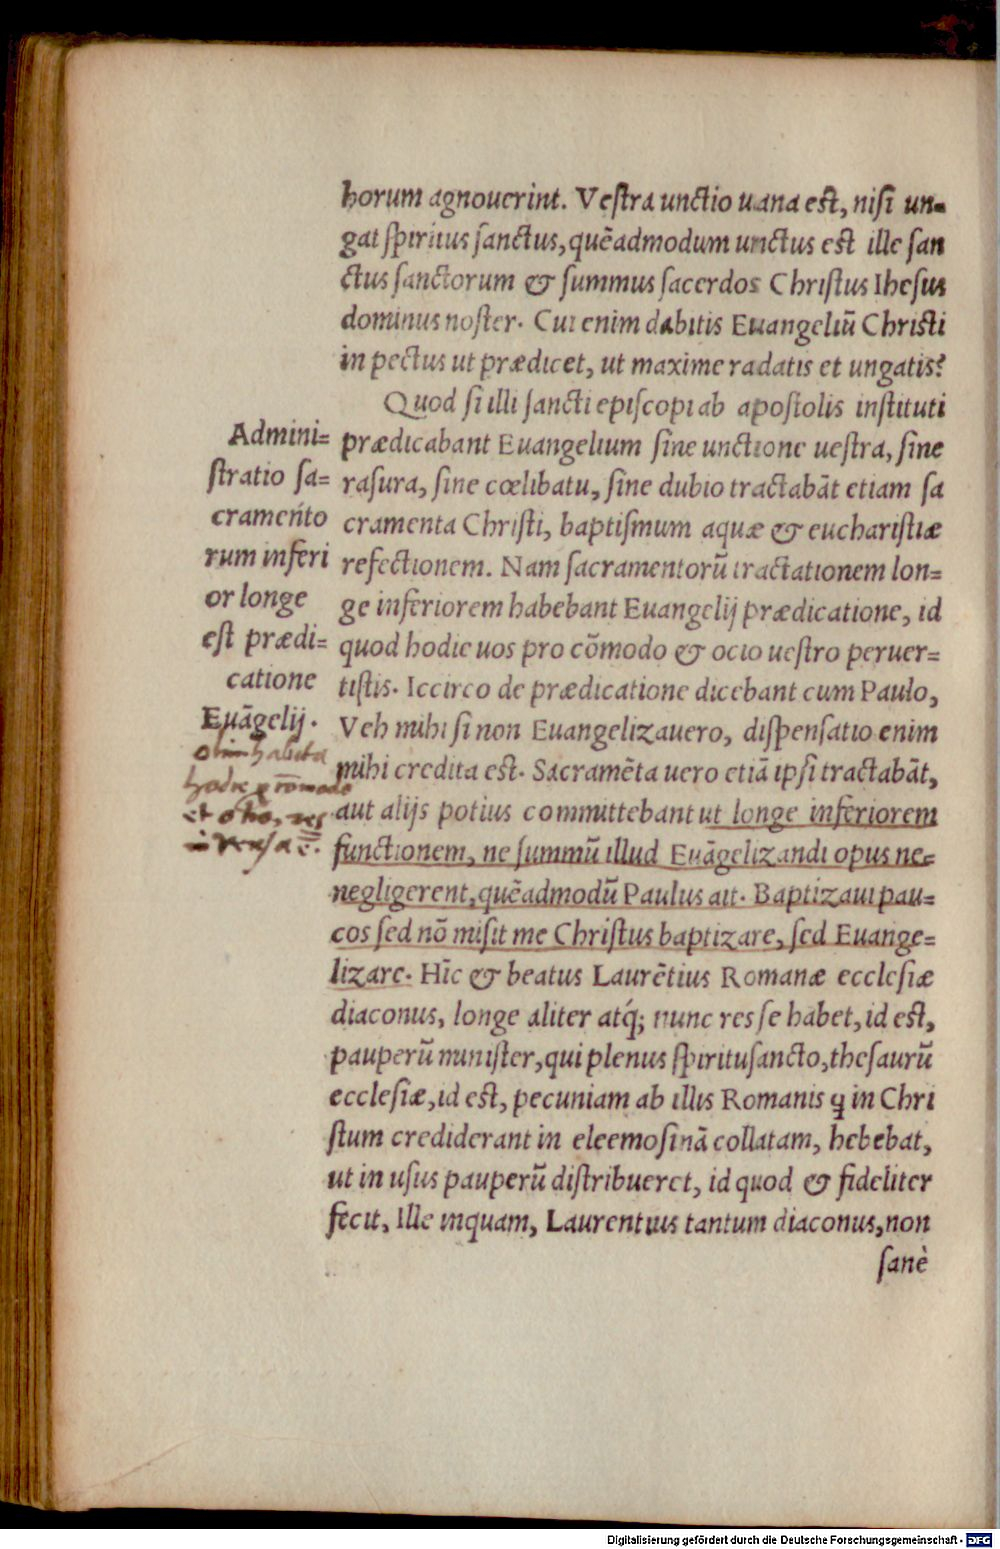 horum agnouerint. Vestra unctio uana est, nisi un=
gat spiritus sanctus, quēadmodum unctus est ille san
ctus sanctorum & summus sacerdos Christus Ihesus
dominus noster. Cui enim dabitis Euangeliū Christi
in pectus ut prædicet, ut maxime radatis et ungatis?
Quod si illi sancti episcopi ab apostolis instituti
prædicabant Euangelium sine unctione uestra, sine
rasura, sine cœlibatu, sine dubio tractabāt etiam sa
cramenta Christi, baptismum aquæ & eucharistiæ
refectionem. Nam sacramentorū tractationem lon=
ge inferiorem habebant Euangelij prædicatione, id
quod hodie uos pro cōmodo & ocio uestro peruer=
tistis. Iccirco de prædicatione dicebant cum Paulo,
Veh mihi si non Euangelizauero, dispensatio enim
mihi credita est. Sacramēta uero etiā ipsi tractabāt,
aut alijs potius committebant ut longe inferiorem
functionem, ne summū illud Euāgelizandi opus ne=
negligerent, quēadmodū Paulus ait. Baptizaui pau=
cos sed nō misit me Christus baptizare, sed Euange=
lizare. Hīc & beatus Laurētius Romanæ ecclesiæ
diaconus, longe aliter atq́; nunc res se habet, id est,
pauperū minister, qui plenus spiritusancto, thesaurū
ecclesiæ, id est, pecuniam ab illis Romanis ꝗ in Chri
stum crediderant in eleemosinā collatam, hebebat,
ut in usus pauperū distribueret, id quod & fideliter
fecit, Ille inquam, Laurentius tantum diaconus, non
sanè
Admini=
stratio sa=
cramento
rum inferi
or longe
est prædi=
catione
Euāgelij.
olim habita
hodie
et otio, res
inversa ē.
Digitalisierung gefördert durch die Deutsche Forschungsgemeinschaft - DFG